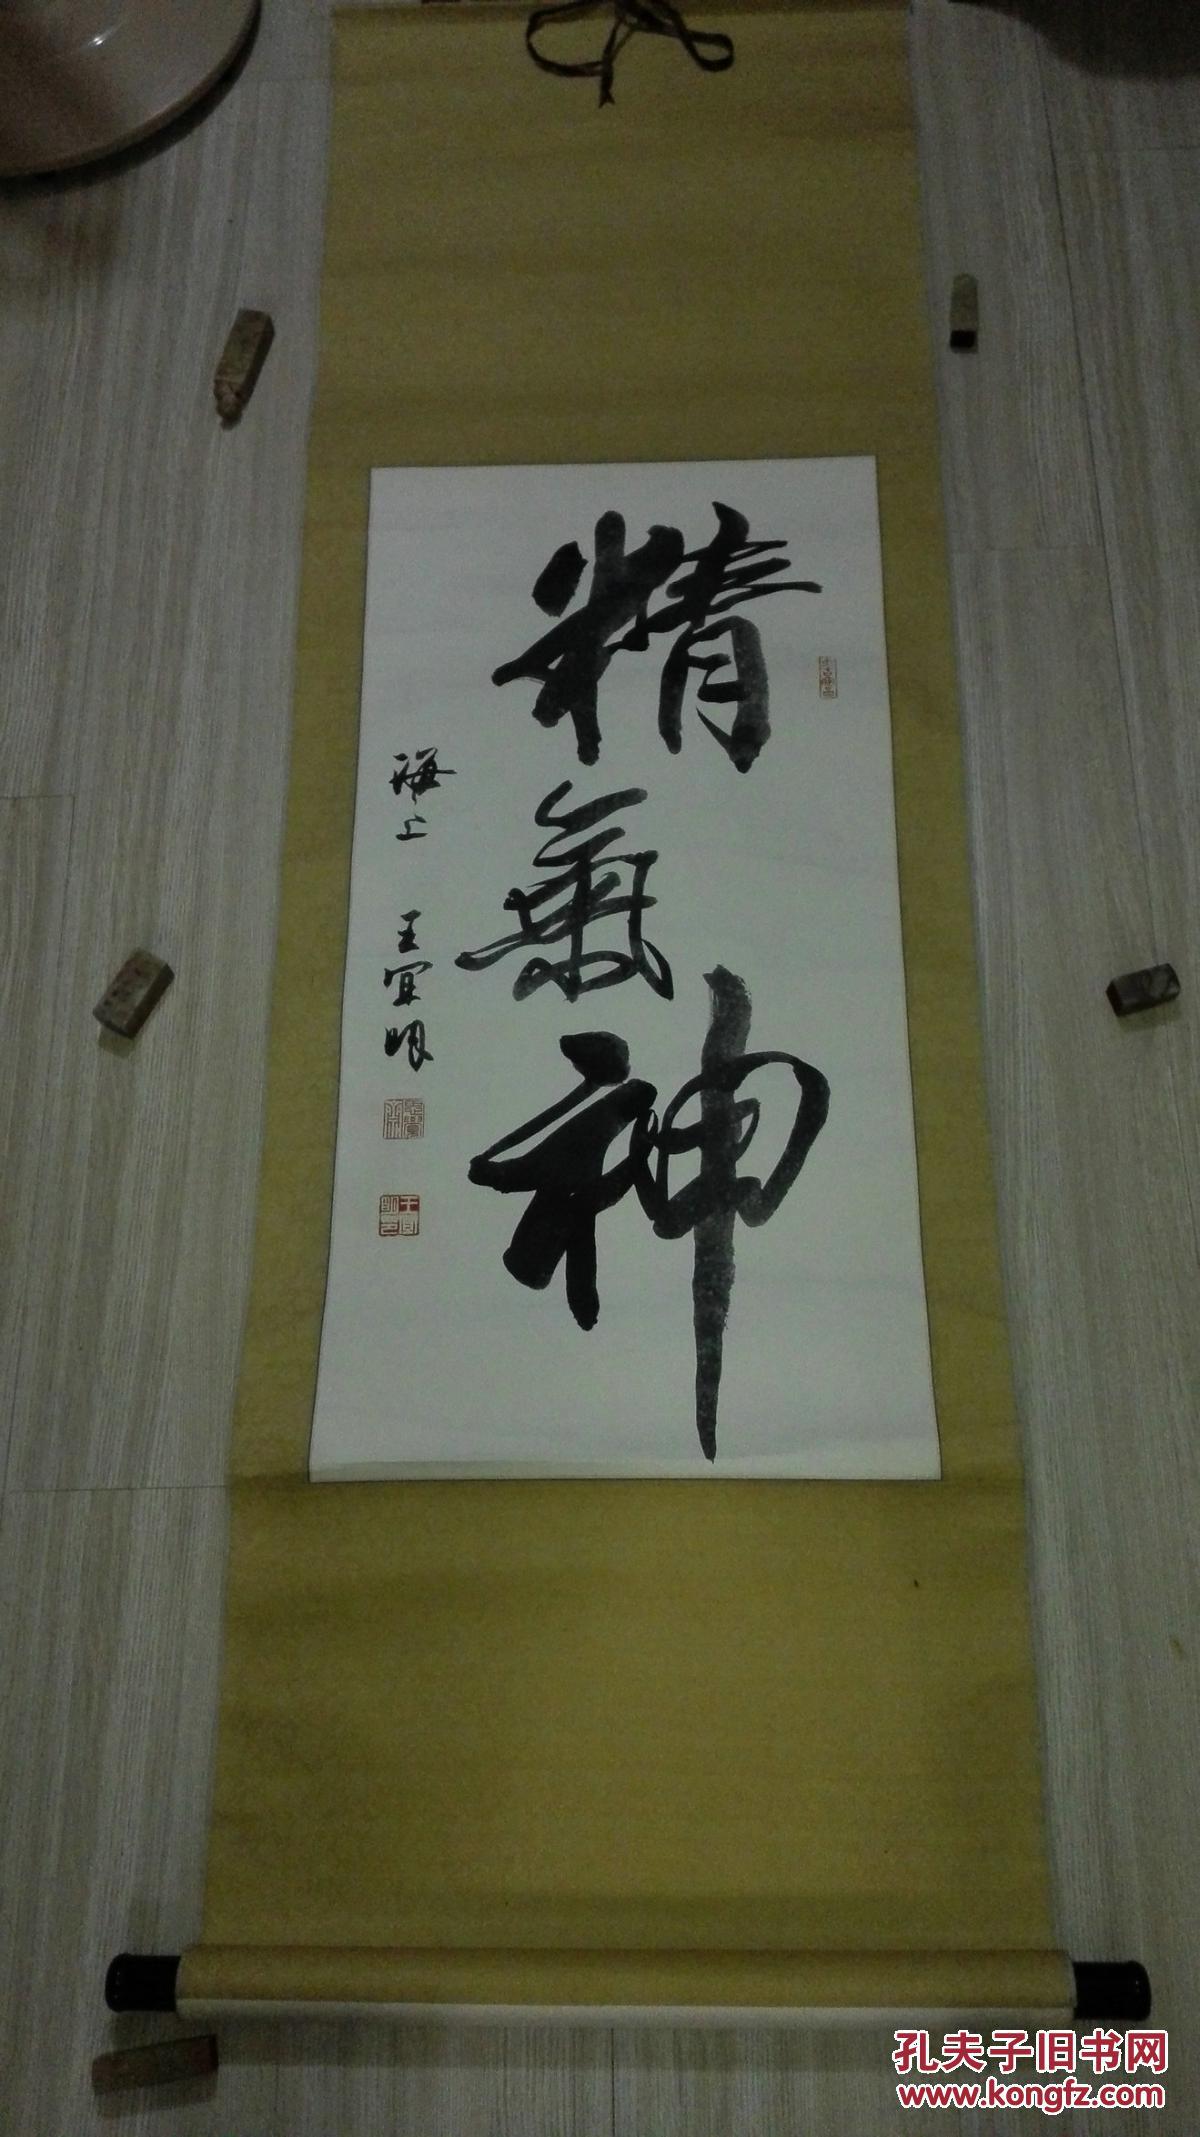 精氣神
海上 王宜明
孔夫子旧书网
www.kongfz.com